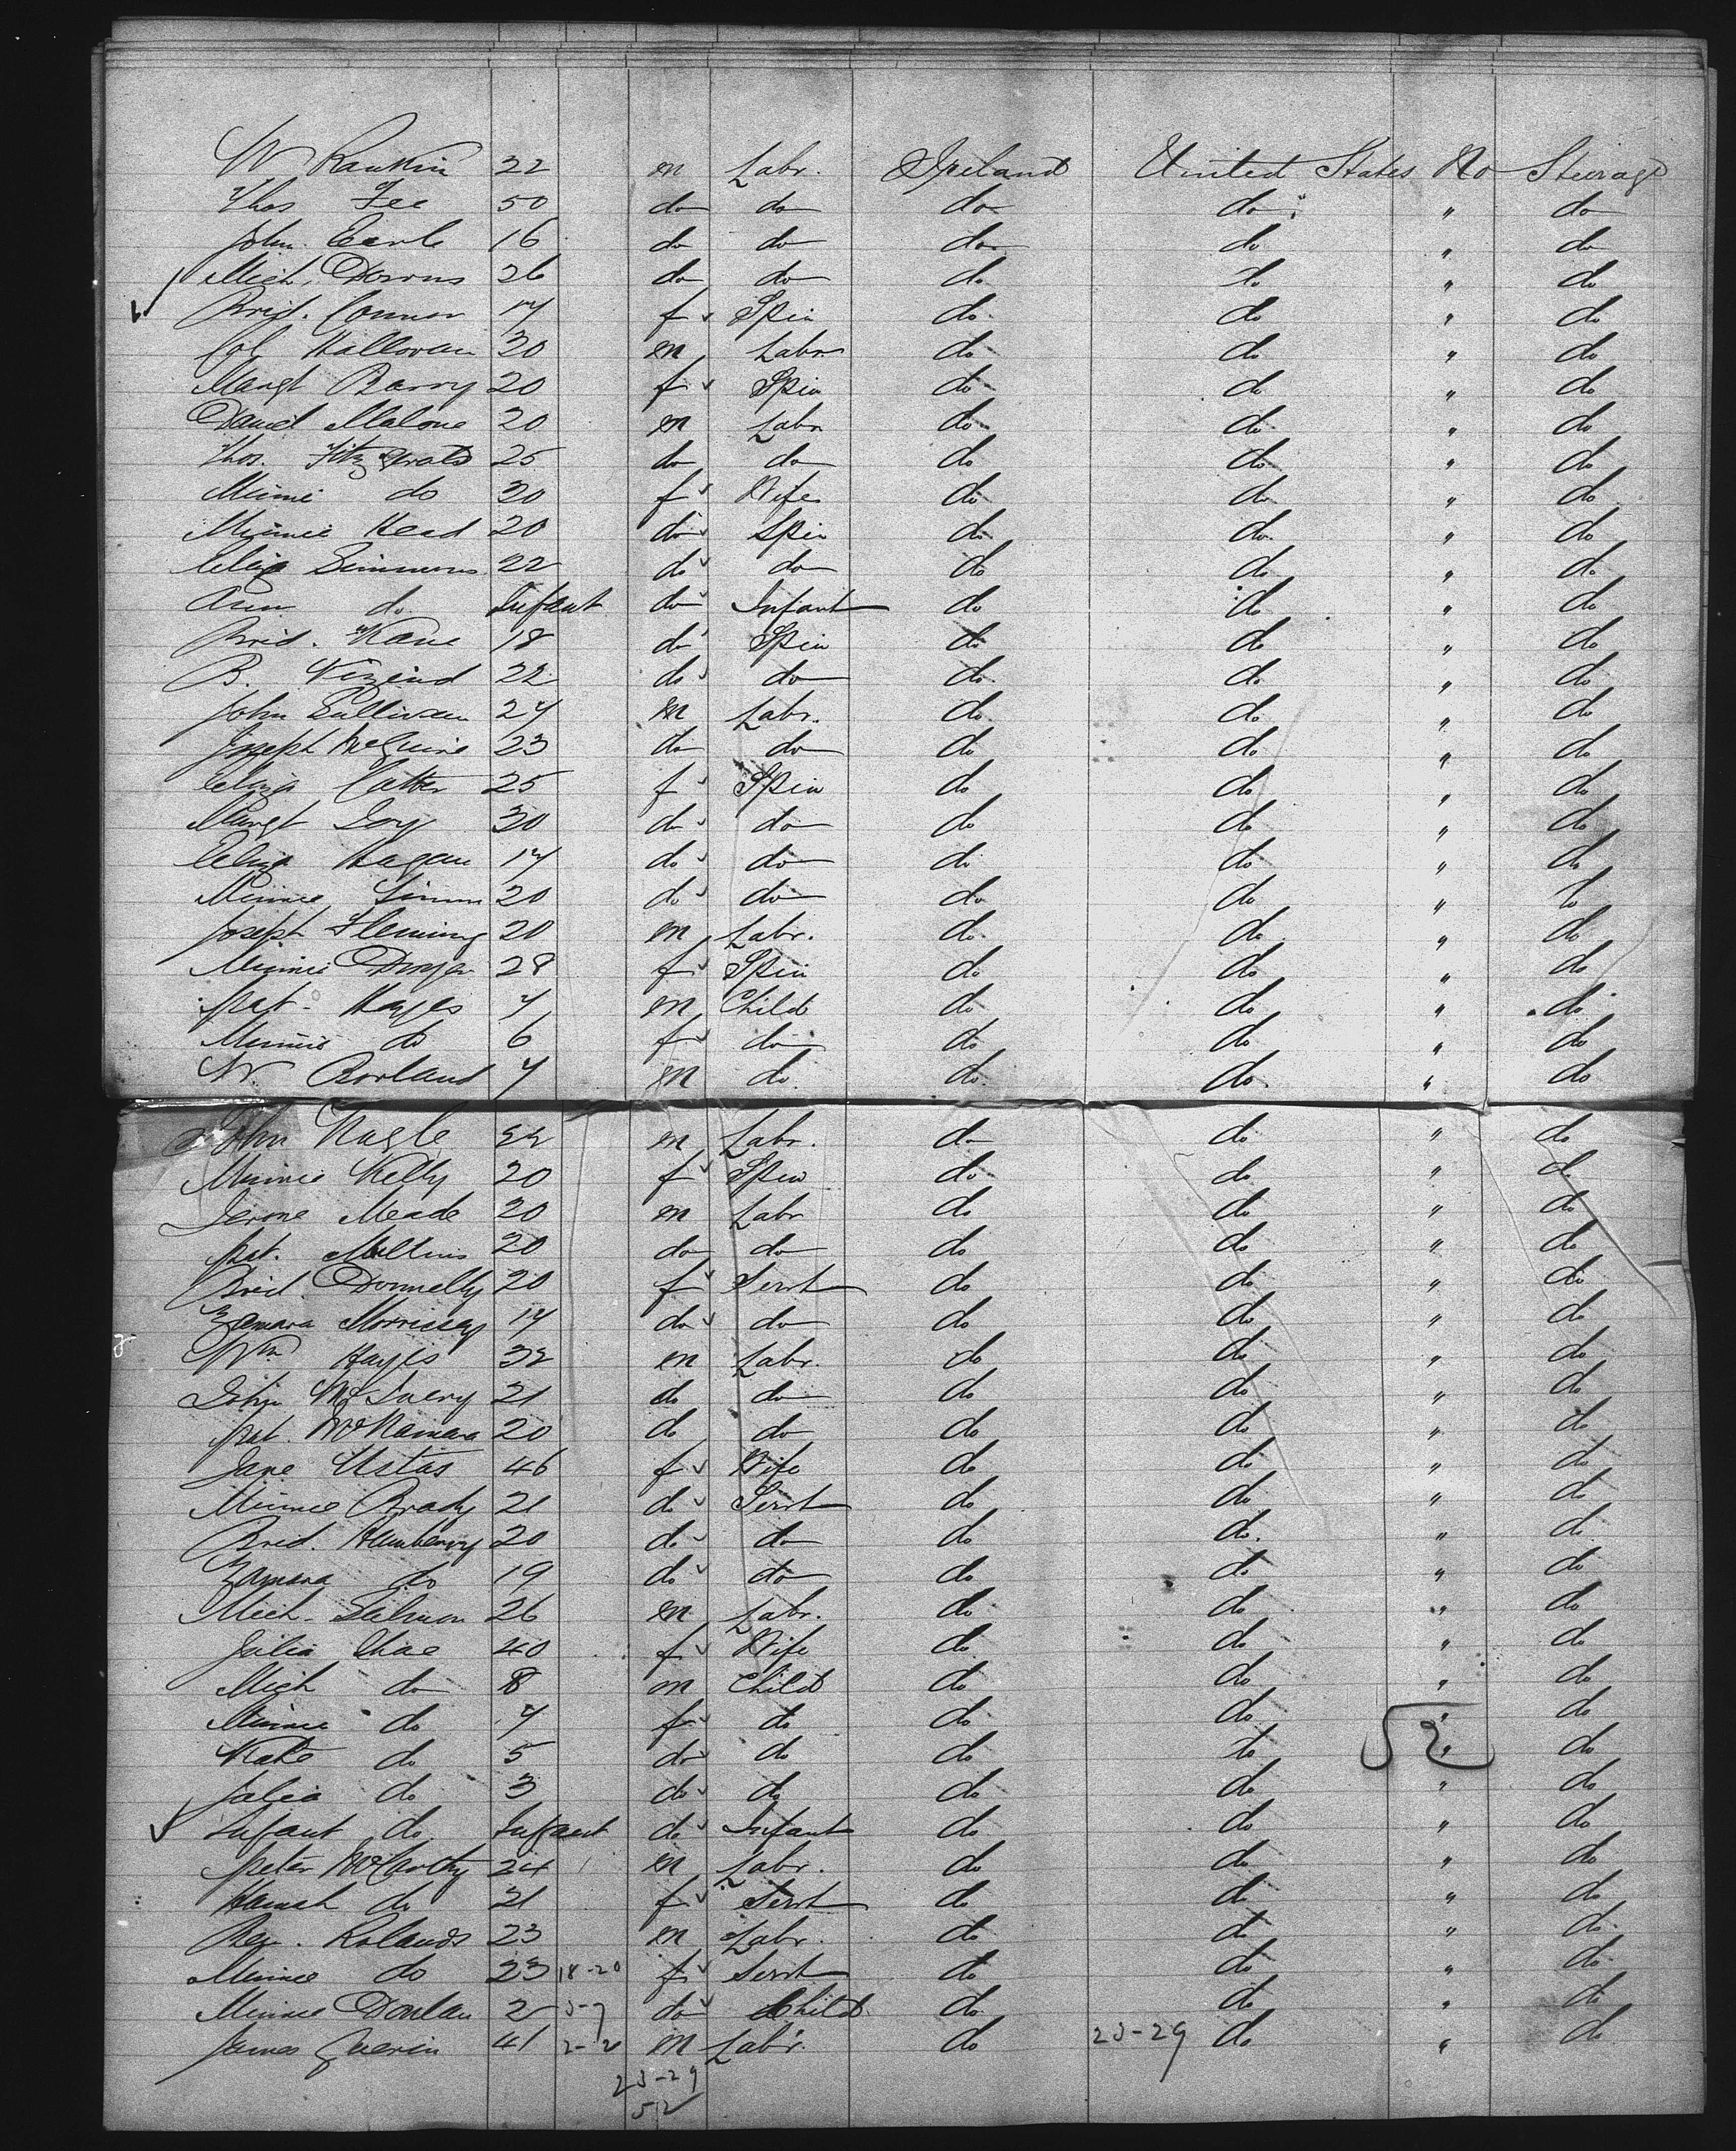 W Rankin 22 m Labr. Ireland United States No Steerage
Thos Fee 50 do do do do " do
John Earl 16 do do do do " do
Mich. Downs 26 do do do do " do
Brid. Connor 17 f Spin do do " do
Halloran 30 m Labr do do " do
Margt Barry 20 f Spin do do " do
David Malone 20 m Labr do do " do
Thos. Fitzgerald 25 do do do do " do
Minnie do 20 f Wife do do " do
Minnie Head 20 do Spin do do " do
Eliza Simmons 22 do do do do " do
Ann do Infant do Infant do do " do
Brid. Kane 18 do Spin do do " do
B. 22 do do do do " do
John Sullivan 24 m Labr. do do " do
Joseph McGuire 23 do do do do " do
Eliza Cotter 25 f Spin do do " do
Margt 30 do do do do " do
Eliza Hagan 17 do do do do " do
Minnie 20 do do do do " do
Joseph Fleming 20 m Labr. do do " do
Minnie 28 f Spin do do " do
Pat. Hayes 7 m Child do do " do
Minnie do 6 f do do do " do
W. Borland 7 m do do do " do
John Nagle 22 m Labr. do do " do
Minnie Kelly 20 f Spin do do " do
Jerome Meade 20 m Labr do do " do
Pat. Mullins 20 do do do do " do
Brid. Donnelly 20 f Servt do do " do
Morrissey 17 do do do do " do
Wm Hayes 32 m Labr. do do " do
John 21 do do do do " do
Pat. McNamara 20 do do do do " do
Jane Ustas 46 f Wife do do " do
Minnie Brady 21 do Servt do do " do
Brid. Hanberry 20 do do do do " do
do 19 do do do do " do
Mich. Salmon 26 m Labr. do do " do
Julia Shae 40 f Wife do do " do
Mich do 8 m Child do do " do
Minnie do 7 f do do do " do
Kate do 5 do do do do 52 " do
Julia do 3 do do do do " do
Infant do Infant do Infant do do " do
Peter McCarthy 24 m Labr. do do " do
Hannah do 21 f Servt do do " do
Rolands 23 m Labr. do do " do
Minnie do 23 18-20 f Servt do do " do
Minnie Donlan 2 5-7 do Child do do " do
James Guerin 41 2-2 m Labr. do 23-29 do " do
23-29
52